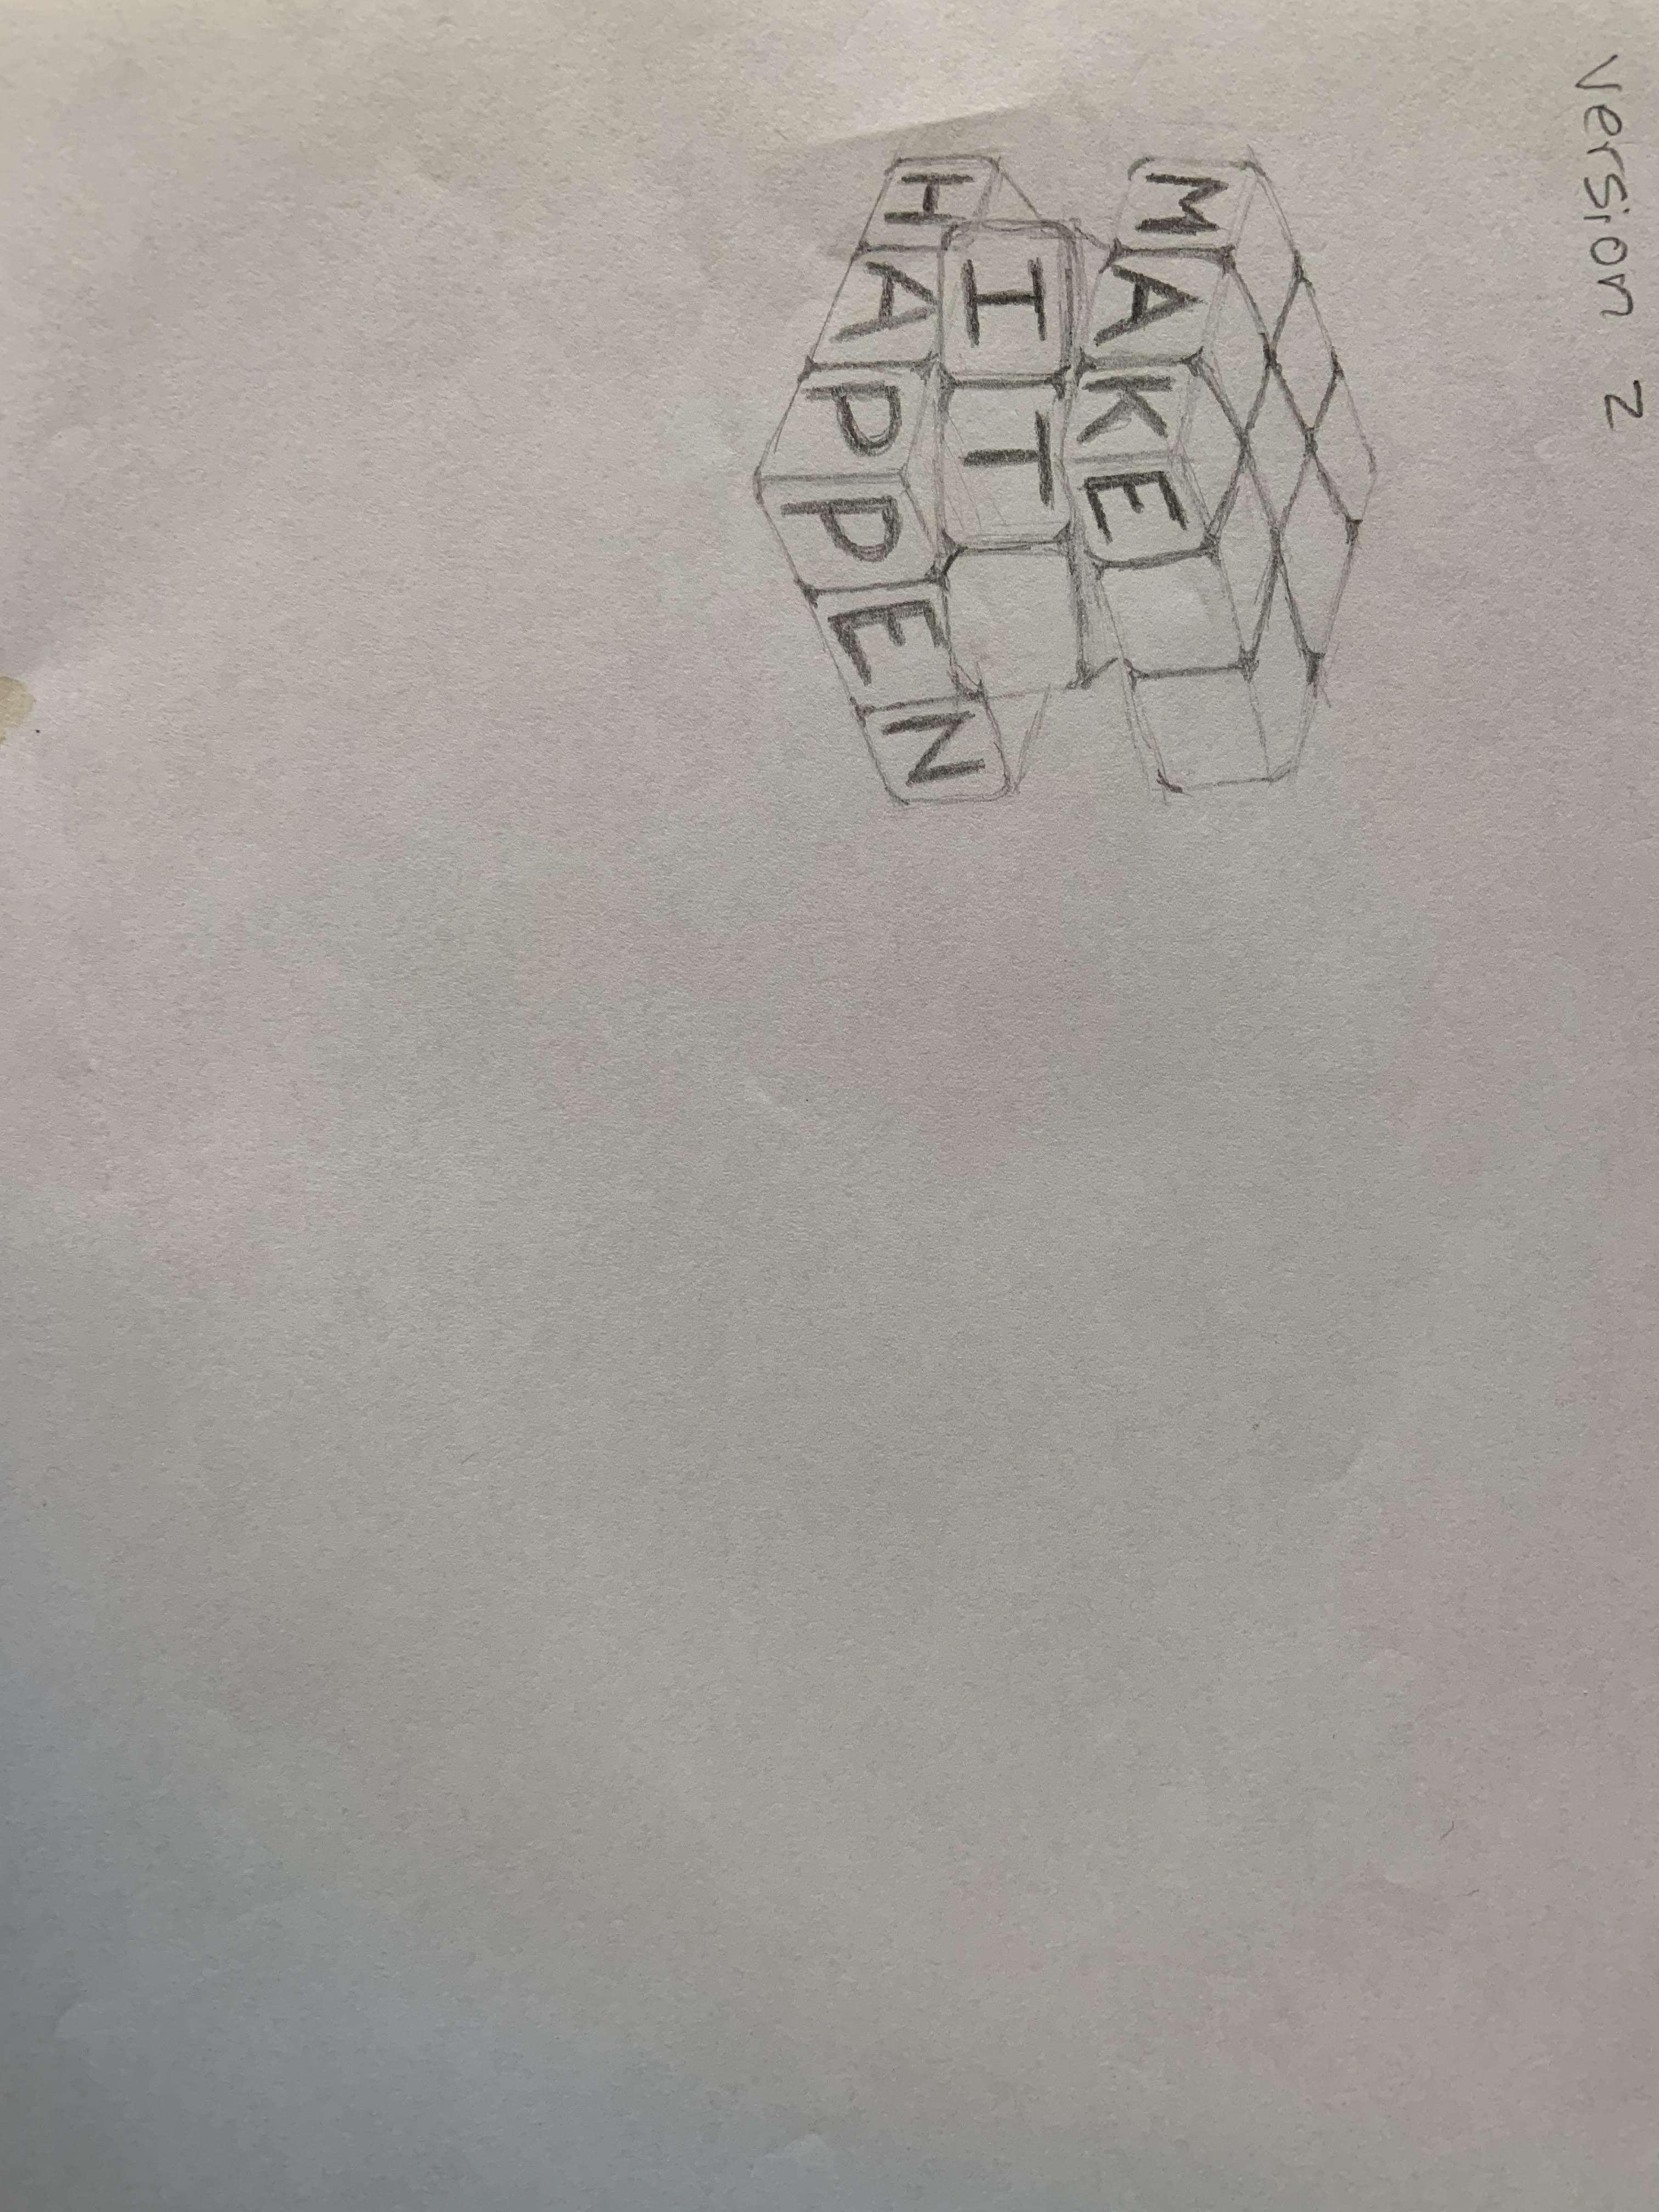 Version 2
MAKE
IT
HAPPEN